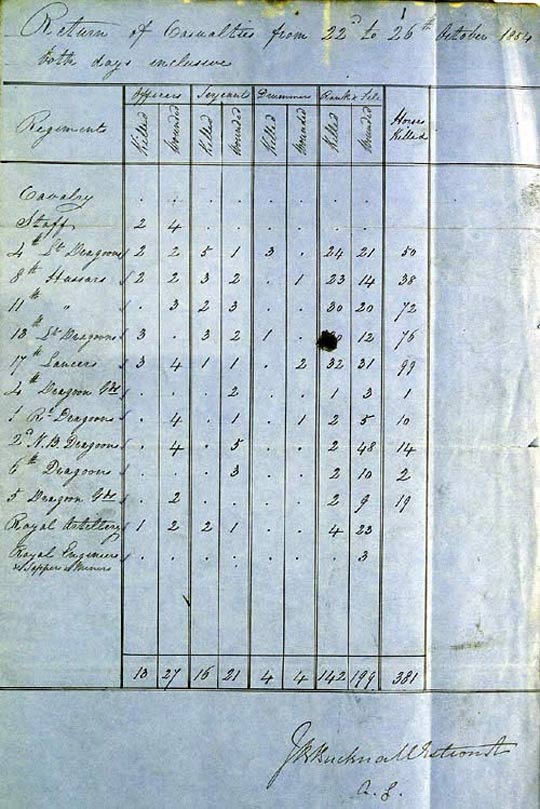 Return of Casualties from 22d to 26th October 1854
both days inclusive
Officers Serjeants Drummers Rank & File
Regiments Killed Wounded Killed Wounded Killed Wounded Killed Wounded Horses Killed
Cavalry . . . . . . . . .
Staff 2 4 . . . . . .
4th Lt Dragoons 2 2 5 1 3 . 24 21 50
8th Hussars 2 2 3 2 . 1 23 14 38
11th " . 3 2 3 . . 30 20 72
13th Lt Dragoons 3 . 3 2 1 . 12 76
17th Lancers 3 4 1 1 . 2 32 31 99
4th Dragoon Gds . . . 2 . . 1 3 1
1 Rl Dragoons . 4 . 1 . 1 2 5 10
2d N.B. Dragoons . 4 . 5 . . 2 48 14
6th Dragoons . . . 3 . . 2 10 2
5 Dragoon Gds . 2 . . . . 2 9 19
Royal Artillery 1 2 2 1 . . 4 23
Royal Engineers . . . . . . . 3
& Sappers & Miners
13 27 16 21 4 4 142 199 381
A.G.